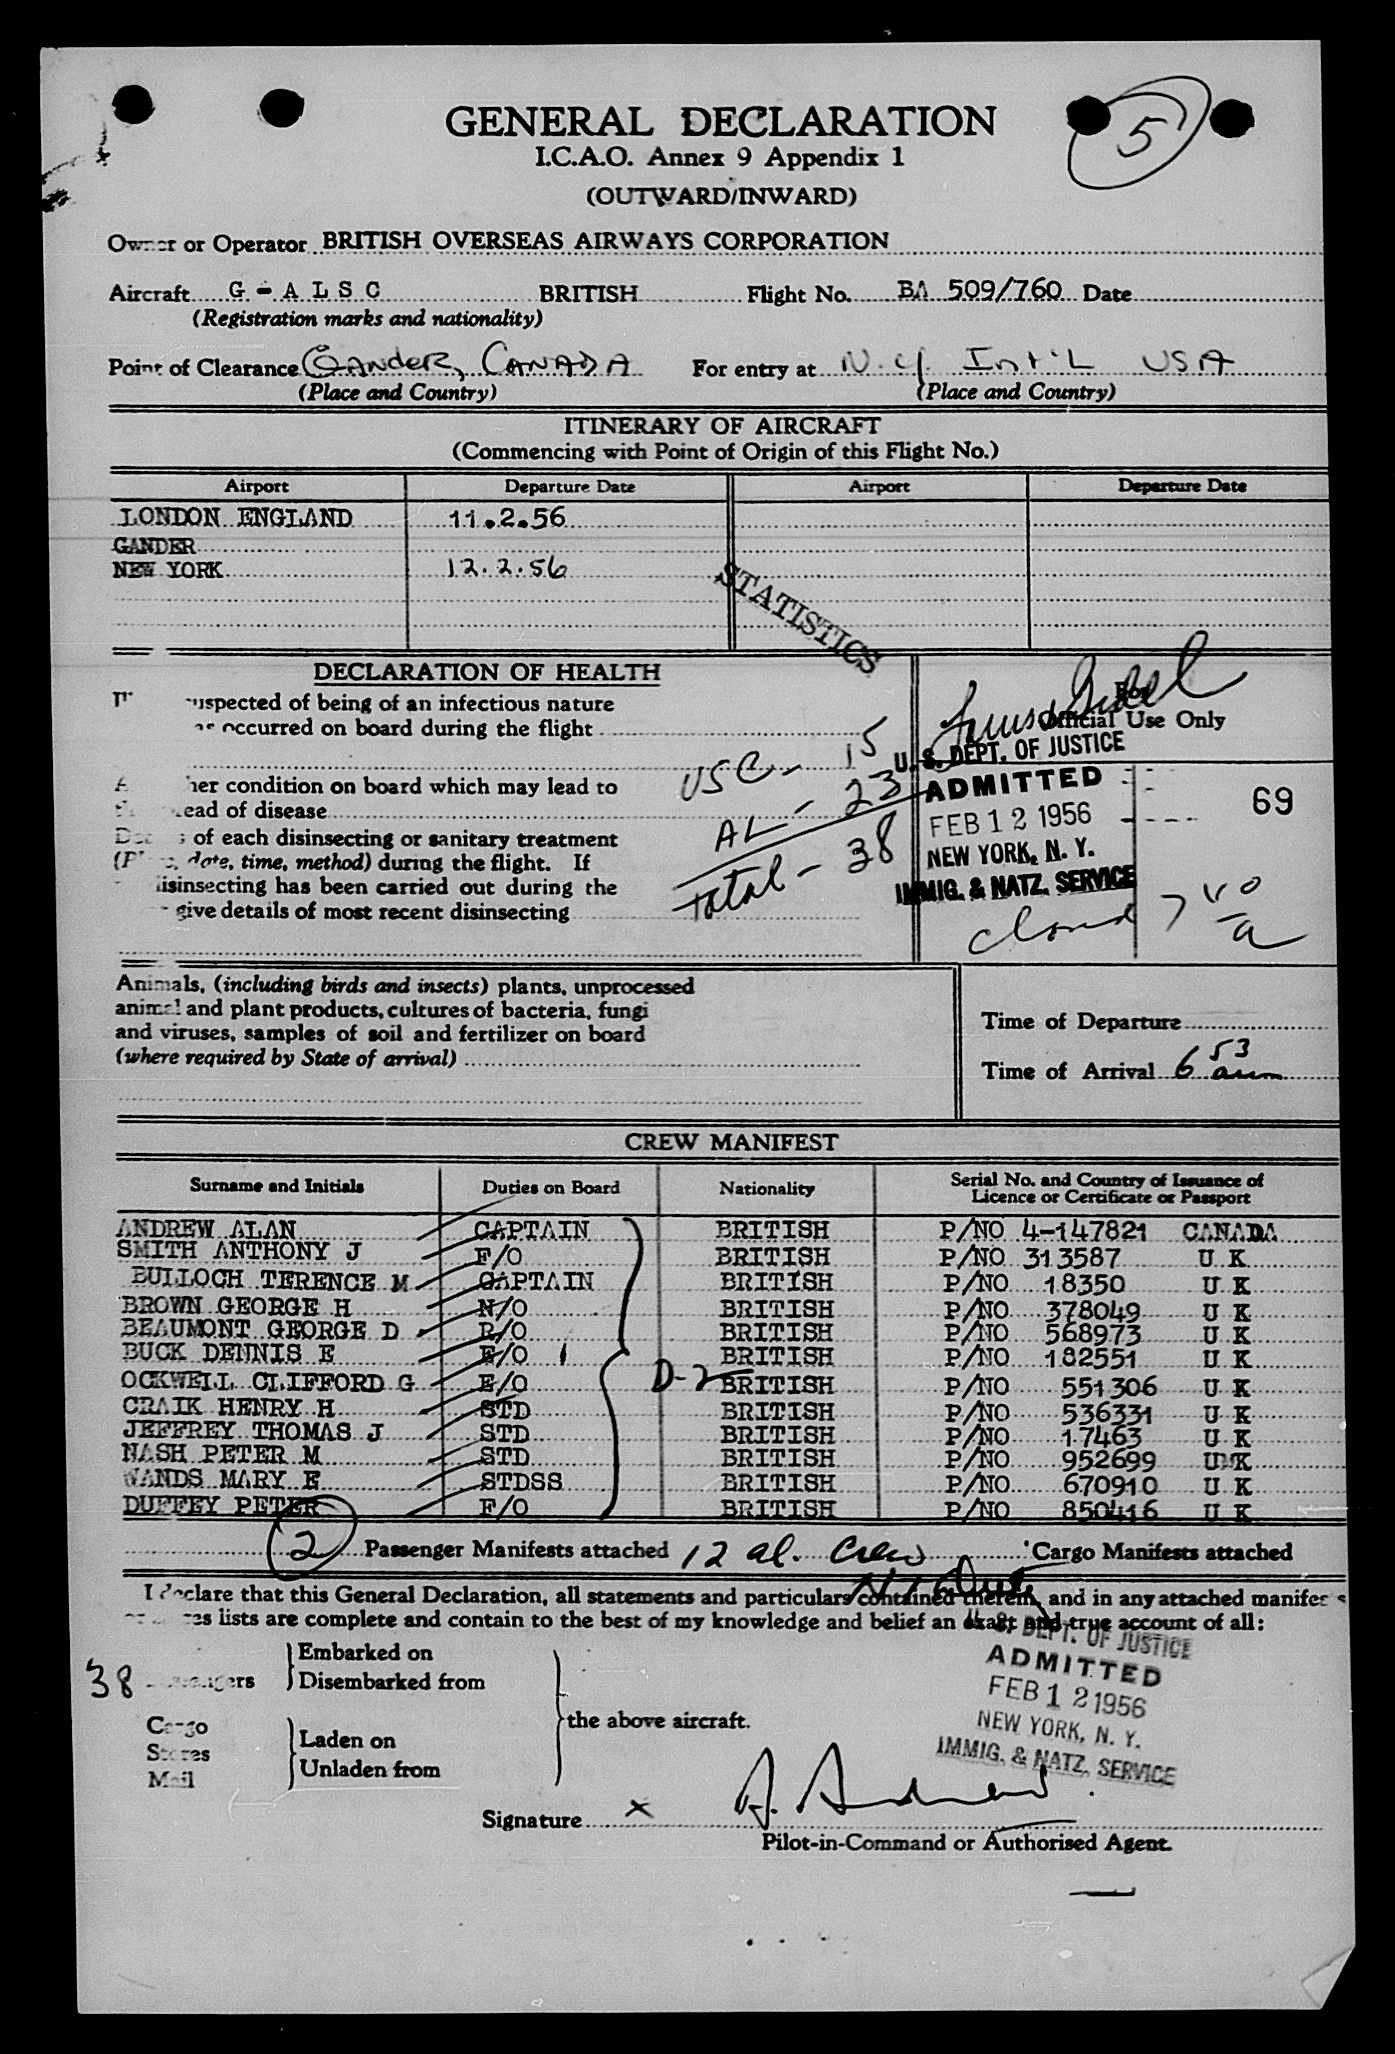 5
GENERAL DECLARATION
I.C.A.O. Annex 9 Appendix 1
(OUTWARD/INWARD)
Owner or Operator BRITISH OVERSEAS AIRWAYS CORPORATION
Aircraft G - A L S C BRITISH Flight No. BA 509/760 Date
(Registration marks and nationality)
Point of Clearance Gander, CANADA For entry at N.Y. Int'L USA
(Place and Country) (Place and Country)
ITINERARY OF AIRCRAFT
(Commencing with Point of Origin of this Flight No.)
Airport Departure Date Airport Departure Date
LONDON ENGLAND 11.2.56
GANDER
NEW YORK 12.2.56
STATISTICS
DECLARATION OF HEALTH
suspected of being of an infectious nature
occurred on board during the flight
For
Official Use Only
condition on board which may lead to
of disease
of each disinsecting or sanitary treatment
date, time, method) during the flight. If
disinsecting has been carried out during the
give details of most recent disinsecting
USC - 15
AL - 23
Total - 38
U. S. DEPT. OF JUSTICE
ADMITTED
FEB 12 1956
NEW YORK, N. Y.
IMMIG. & NATZ. SERVICE
69
7 40 a
Animals, (including birds and insects) plants, unprocessed
animal and plant products, cultures of bacteria, fungi
and viruses, samples of soil and fertilizer on board
(where required by State of arrival)
Time of Departure
Time of Arrival 6 53 am
CREW MANIFEST
Surname and Initials Duties on Board Nationality Serial No. and Country of Issuance of Licence or Certificate or Passport
ANDREW ALAN CAPTAIN BRITISH P/NO 4-147821 CANADA
SMITH ANTHONY J F/O BRITISH P/NO 313587 U K
BULLOCH TERENCE M CAPTAIN BRITISH P/NO 18350 U K
BROWN GEORGE H N/O BRITISH P/NO 378049 U K
BEAUMONT GEORGE D R/O BRITISH P/NO 568973 U K
BUCK DENNIS E E/O BRITISH P/NO 182551 U K
OCKWELL CLIFFORD G E/O D-2 BRITISH P/NO 551306 U K
CRAIK HENRY H STD BRITISH P/NO 536331 U K
JEFFREY THOMAS J STD BRITISH P/NO 17463 U K
NASH PETER M STD BRITISH P/NO 952699 U K
WANDS MARY E STDSS BRITISH P/NO 670910 U K
DUFFEY PETER F/O BRITISH P/NO 850416 U K
2 Passenger Manifests attached 12 al. Crew Cargo Manifests attached
I declare that this General Declaration, all statements and particulars contained therein, and in any attached
lists are complete and contain to the best of my knowledge and belief an exact and true account of all:
38
Embarked on
Disembarked from
Cargo
Stores
Mail
Laden on
Unladen from
the above aircraft.
U. S. DEPT. OF JUSTICE
ADMITTED
FEB 12 1956
NEW YORK, N. Y.
IMMIG. & NATZ. SERVICE
Signature x A. Andrew
Pilot-in-Command or Authorised Agent.